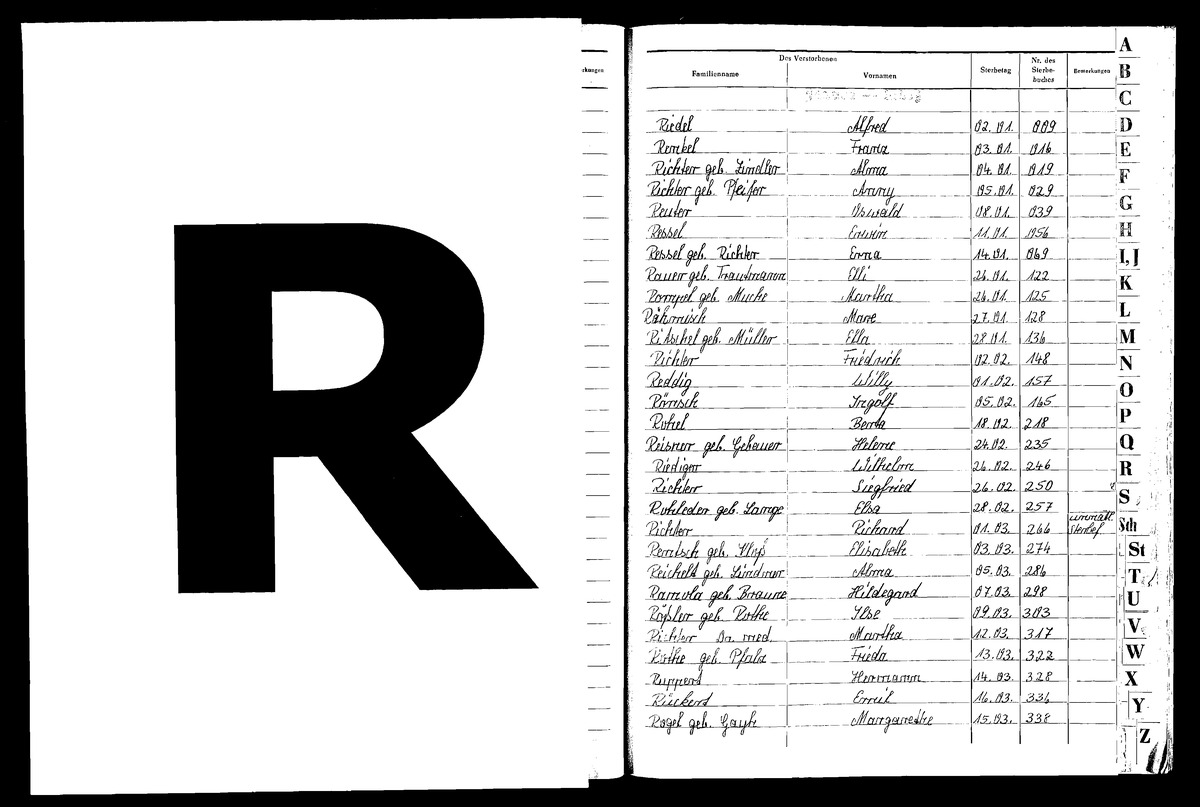 R
rkungen
Des Verstorbenen
Familienname Vornamen Sterbetag Nr. des Sterbe-buches Bemerkungen
Riedel Alfred 02.01. 009
Renkel Franz 03.01. 016
Richter geb. Lindler Alma 04.01. 019
Richter geb. Pfeifer Anny 05.01. 029
Reuter Oswald 08.01. 039
Ressel Erwin 11.01. 056
Ressel geb. Richter Erna 14.01. 069
Rauer geb. Trautmann Elli 26.01. 122
Rompel geb. Mucke Martha 26.01. 125
Marie 27.01. 128
Ritschel geb. Müller Ella 28.01. 136
Richter Friedrich 02.02. 148
Reddig Willy 01.02. 157
Römisch Ingolf 05.02. 165
Berta 18.02. 218
Reisner geb. Gebauer Helene 24.02. 235
Riediger Wilhelm 26.02. 246
Richter Siegfried 26.02. 250
Rohleder geb. Lange Elsa 28.02. 257
Richter Richard 01.03. 266
Elisabeth 03.03. 274
Reichelt geb. Lindner Alma 05.03. 286
Ramola geb. Braune Hildegard 07.03. 298
Rößler geb. Rothe Ilse 09.03. 303
Richter Dr. med. Martha 12.03. 317
Röthe geb. Pfalz Frieda 13.03. 322
Ruppert Hermann 14.03. 328
Rückert Emil 16.03. 336
Rogel geb. Margarethe 15.03. 338
A
B
C
D
E
F
G
H
I, J
K
L
M
N
O
P
Q
R
S
Sch
St
T
U
V
W
X
Y
Z